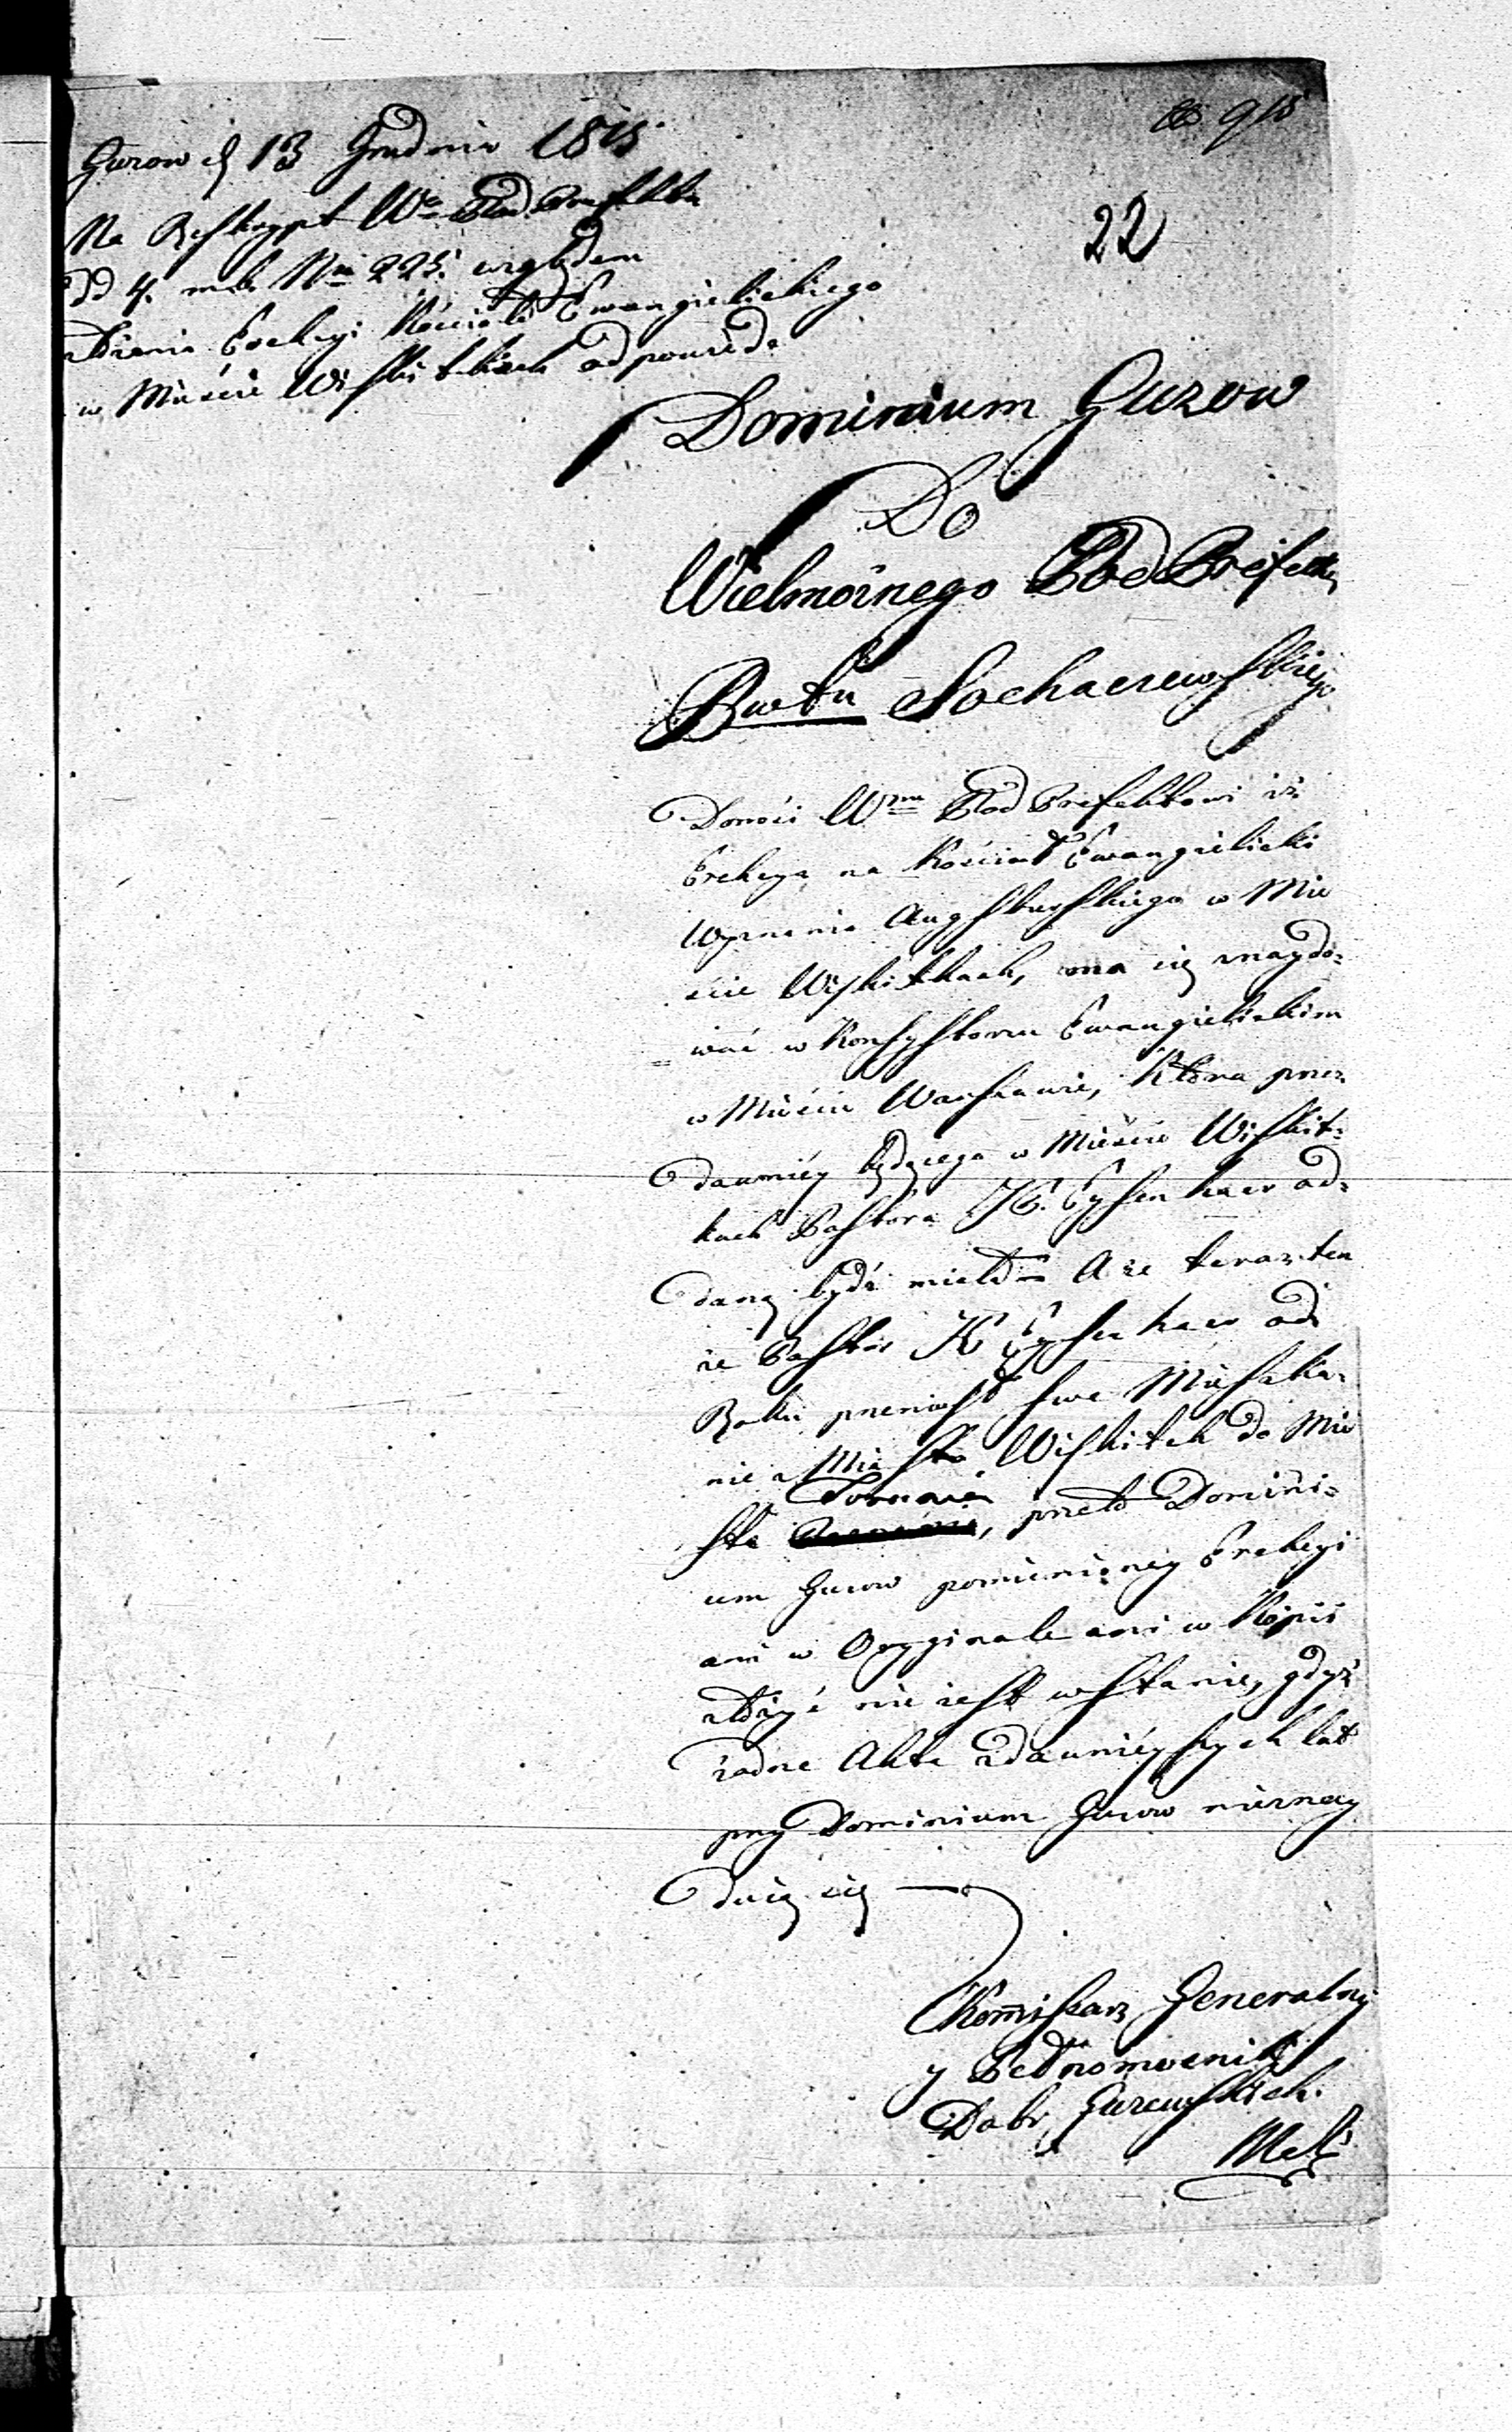 Guzow d 13 Grudnia 1815
22
Na Reskrypt Wo Pod Prefekta
dd 4. m. b. Nro 225. względem
złożenia Erekcyi Kościoła Ewangielickiego
w Mieście Wiskitkach odpowiedz
Dominium Guzow
Do
Wielmożnego Pod Prefekta
Pwtu Sochaczewskiego
Donosi Wmu Pod Prefektowi iż
Erekcya na Kościoł Ewangielicki
Wyznania Augsburskiego w Mie
ście Wiskitkach, ma się znaydo=
=wać w Konsystorzu Ewangielickim
w Mieście Warszawie, Która przez
dawniéy będącego w Mieście Wiskit=
kach Pastora JP. od=
daną bydź miała A że teraz ten
że Pastor od
Roku przeniosł swe Mieszka=
nie z Miasta Wiskitek do Mia
sta , przeto Domini=
um Guzow pomienioney Erekcyi
ani w Oryginale ani w Kopii
złożyć nie iest wstanie, gdyż
żadne Akta zdawniéyszych lat
przy Dominium Guzow nieznay
duią się
Kommisarz Generalny
y Pełnomocnik
Dobr Guzowskich.